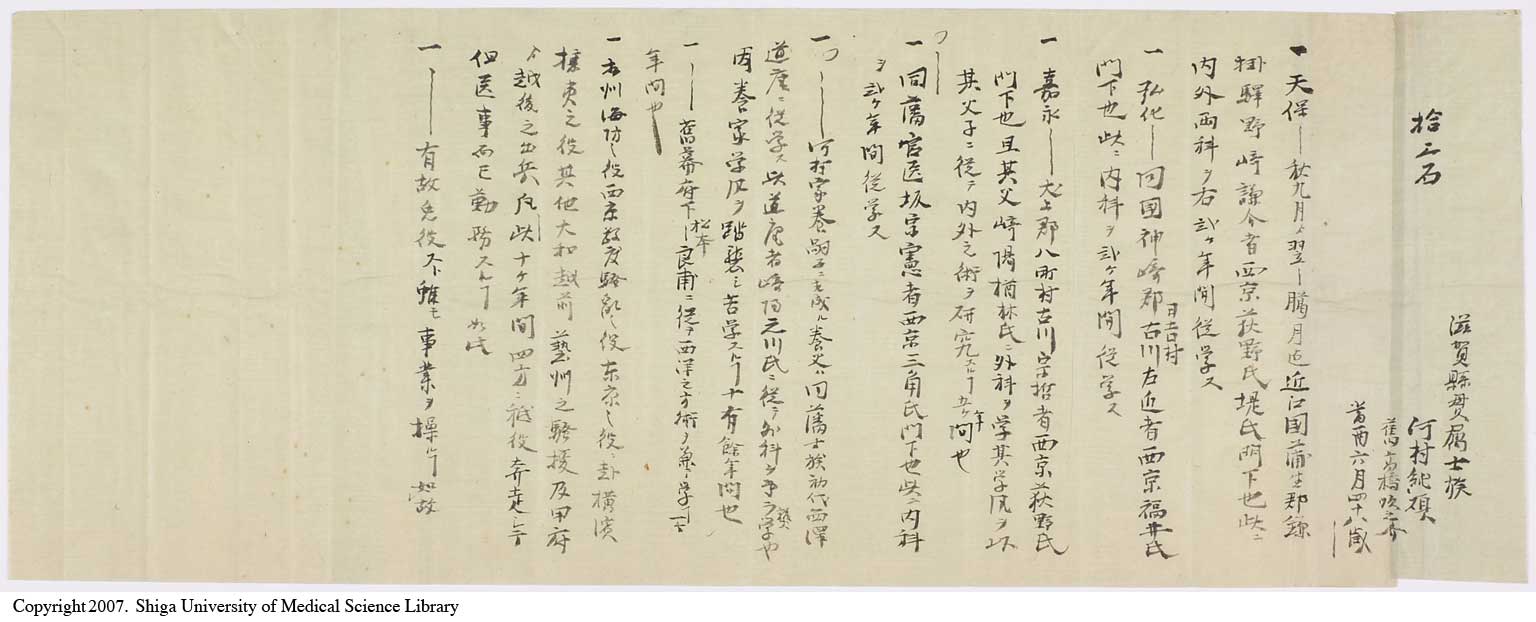 滋賀縣貫属士族
拾三石
河村純碩
舊高橋
當酉六月四十八歳
一天保―秋九月ゟ翌―臘月迄近江国蒲生郡鎌
掛驛野崎謙介者西京荻野氏堤氏門下也此ニ
内外両科ヲ右弐ケ年間従学ス
一弘化―同國神崎郡日吉村古川左近者西京福井氏
門下也此ニ内科ヲ弐ケ年間従学ス
一嘉永―犬上郡八町村古川宗哲者西京荻野氏
門下也且其父崎陽楢林氏ニ外科ヲ学其学風ヲ以
其父子ニ従テ内外之術ヲ研究スルヿ五ケ年間也
一同藩官医坂宗憲者西京三角氏門下也此ニ内科
ヲ弐ケ年間従学ス
一―河村家養嗣子ニ相成ル養父ハ同藩士族初代西澤
道庵ニ従学ス此道庵者崎陽吉川氏ニ従テ外科ヲ学
因養家学風ヲ踏襲シ苦学スルヿ十有餘年間也
一―舊幕府下―松本良甫ニ従テ西洋之方術ヲ兼学
年間也
一本州海防之役西京数度騒乱之役東京之役ニ赴横濱
攘夷之役其他大和越前藝州之騒擾及甲府
越後之出兵凡此十ケ年間四方ニ祗役奔走
但医事而已勤務スルヿ如此
一―有故免役スト雖モ事業ヲ操ルヿ如故
Copyright 2007. Shiga University of Medical Science Library